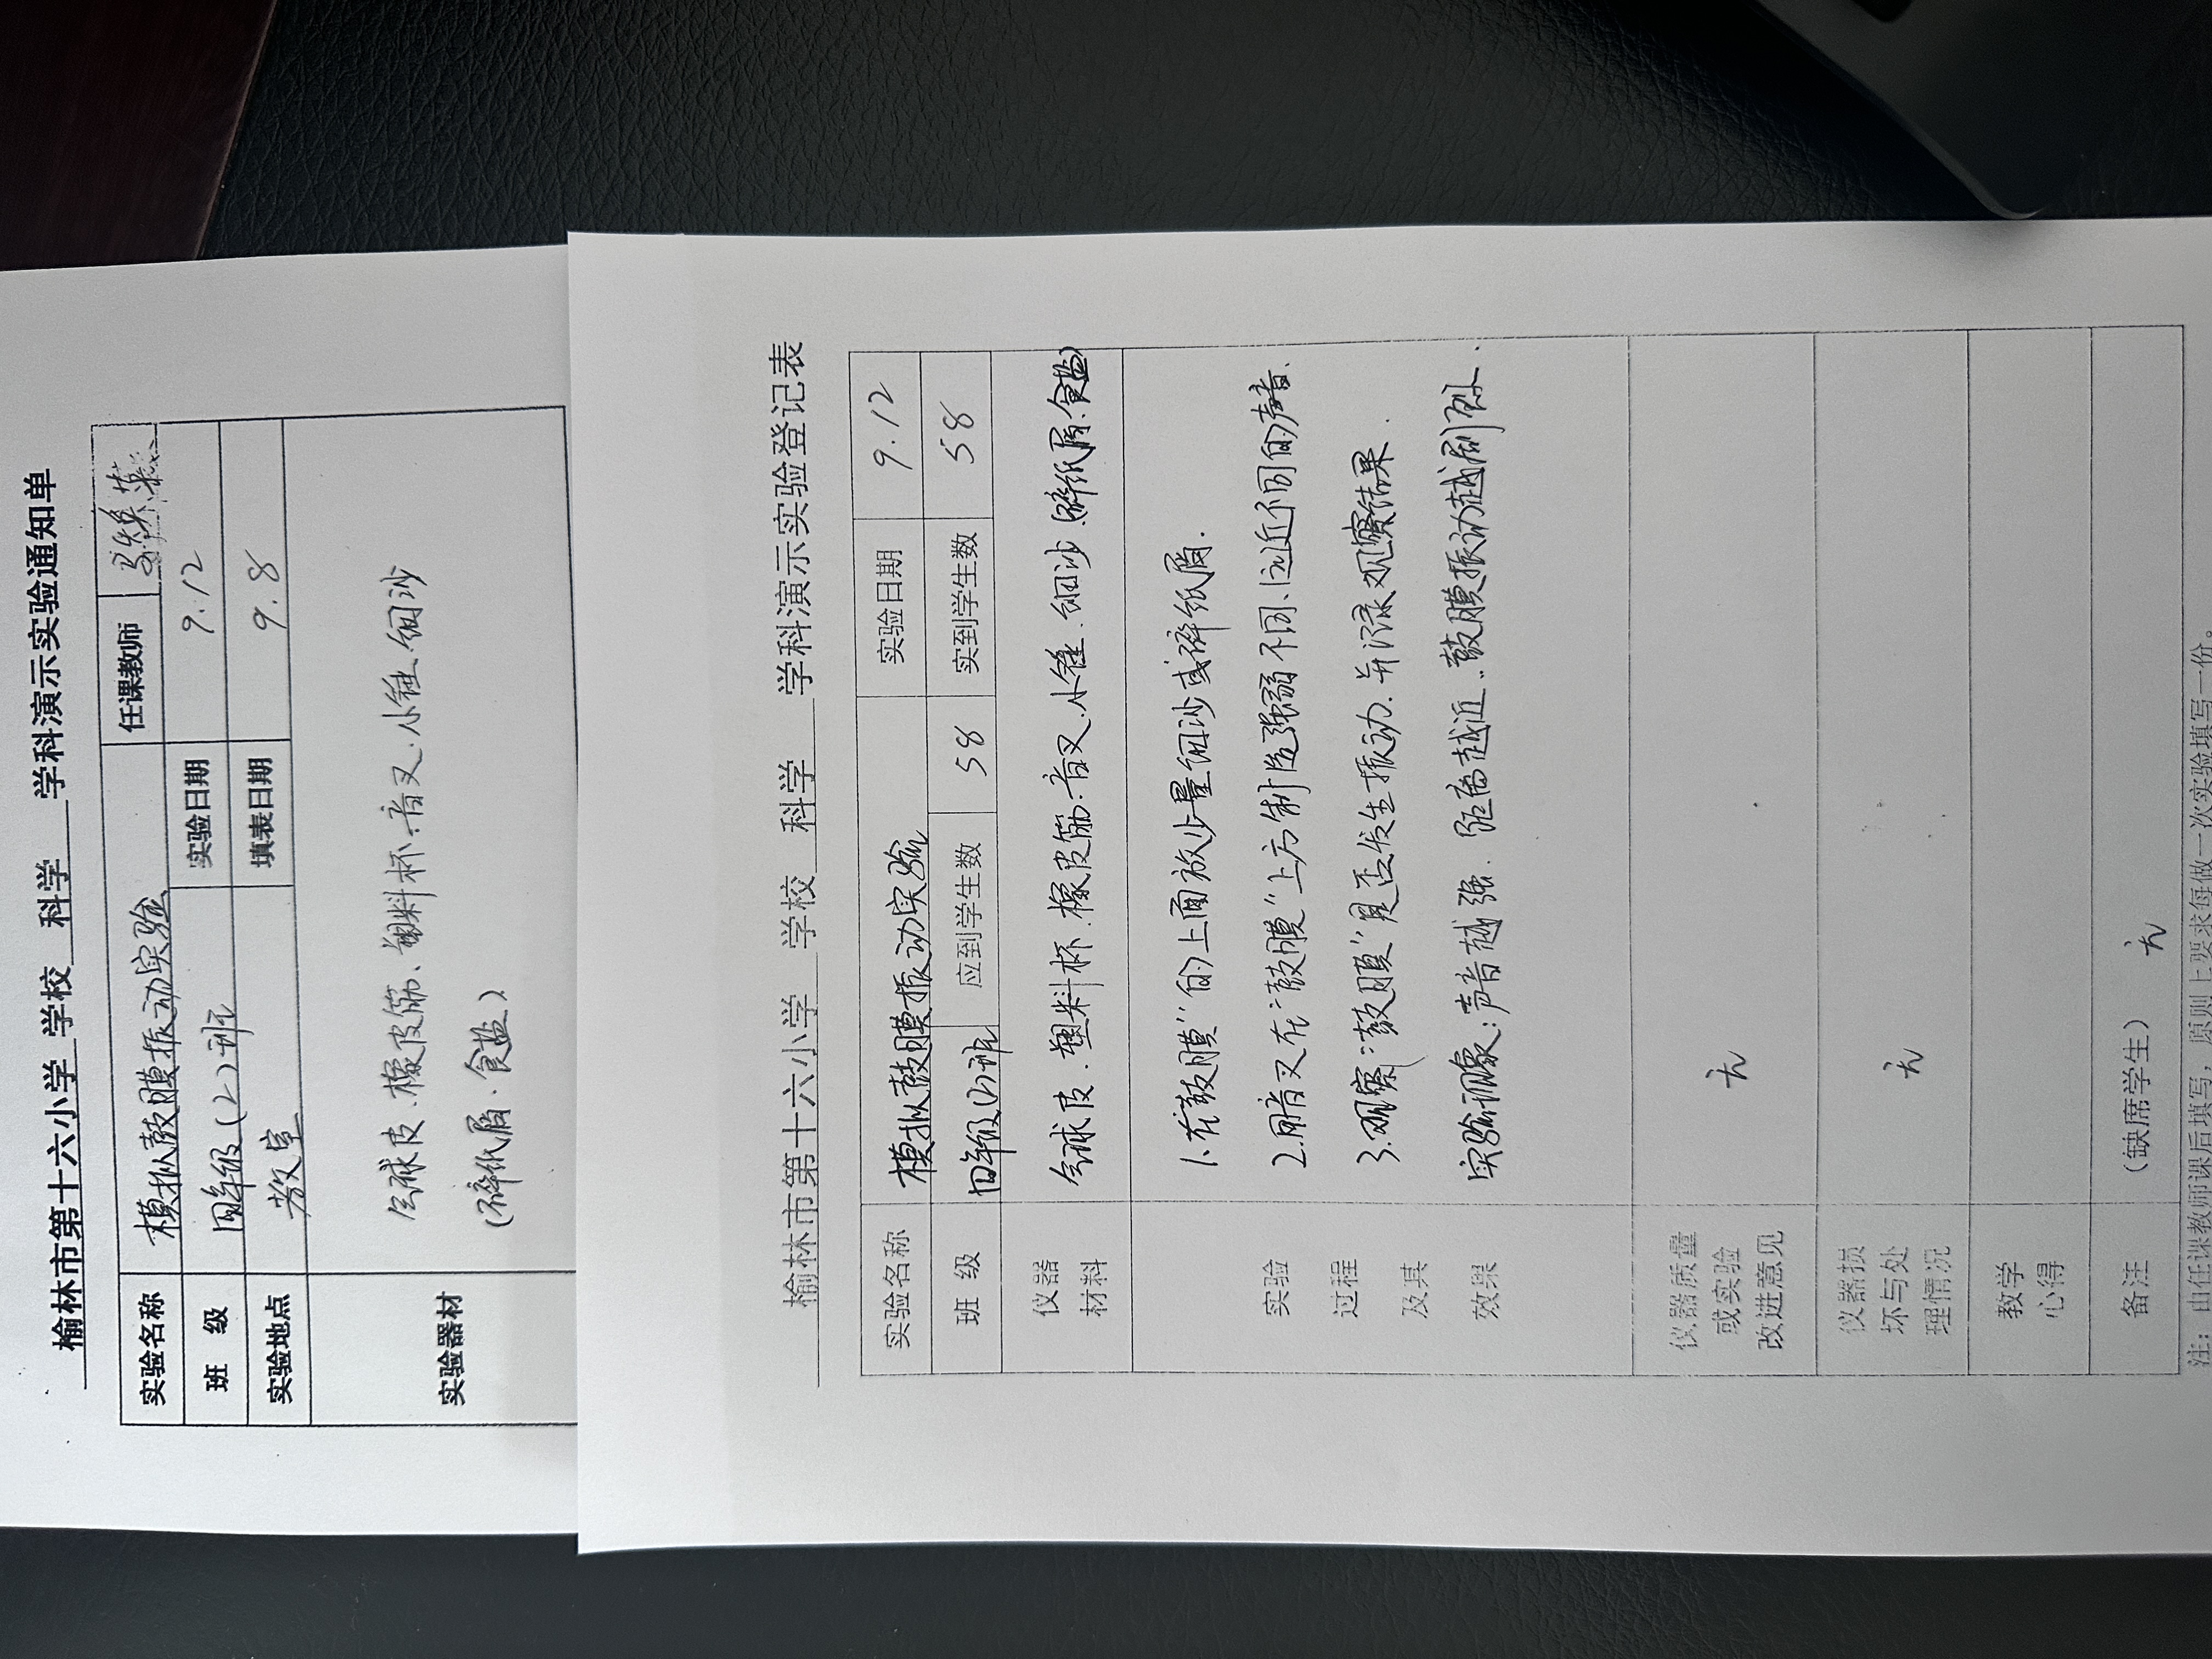 榆林市第十六小学 学校 科学 学科演示实验通知单
实验名称 模拟鼓膜振动实验 任课教师
班 级 四年级(2)班 实验日期 9.12
实验地点 教室 填表日期 9.8
实验器材
气球皮、橡皮筋、塑料杯、音叉、小锤、细沙
(碎纸屑、食盐)
榆林市第十六小学 学校 科学 学科演示实验登记表
实验名称 模拟鼓膜振动实验 实验日期 9.12
班 级 四年级(2)班 应到学生数 58 实到学生数 58
仪器
材料
气球皮、塑料杯、橡皮筋、音叉、小锤、细沙(碎纸屑、食盐)
实验
过程
及其
效果
1.在“鼓膜”的上面放少量细沙或碎纸屑.
2.用音叉在“鼓膜”上方制造强弱不同、远近不同的声音.
3.观察“鼓膜”是否发生振动.并记录观察结果.
实验现象:声音越强.距离越近.鼓膜振动越剧烈.
仪器质量
或实验
改进意见
无
仪器损
坏与处
理情况
无
教学
心得
备注 (缺席学生) 无
注：由任课教师课后填写，原则上要求每做一次实验填写一份。